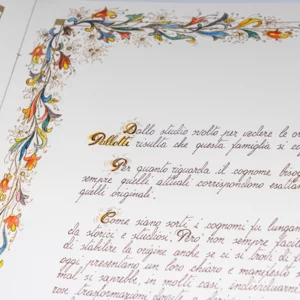 Dallo studio svolto per vedere le or
Pallotti risulta che questa famiglia si co
Per quanto riguarda il cognome biso
sempre quelli attuali corrispondono esatta
quelli originali.
Come siano sorti i cognomi fu lungam
da storici e studiosi. Però non sempre facil
di stabilire la origine anche se ci si trovi di f
oggi presentano un loro chiaro e manifesto s
mal si saprebbe, in molti casi, individuar
rose trasformazioni